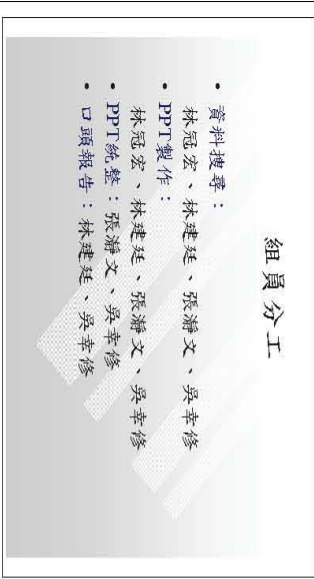 組員分工
• 資料搜尋：
林冠宏、林建廷、張瀞文、吳幸修
• PPT製作：
林冠宏、林建廷、張瀞文、吳幸修
• PPT統整：張瀞文、吳幸修
• 口頭報告：林建廷、吳幸修